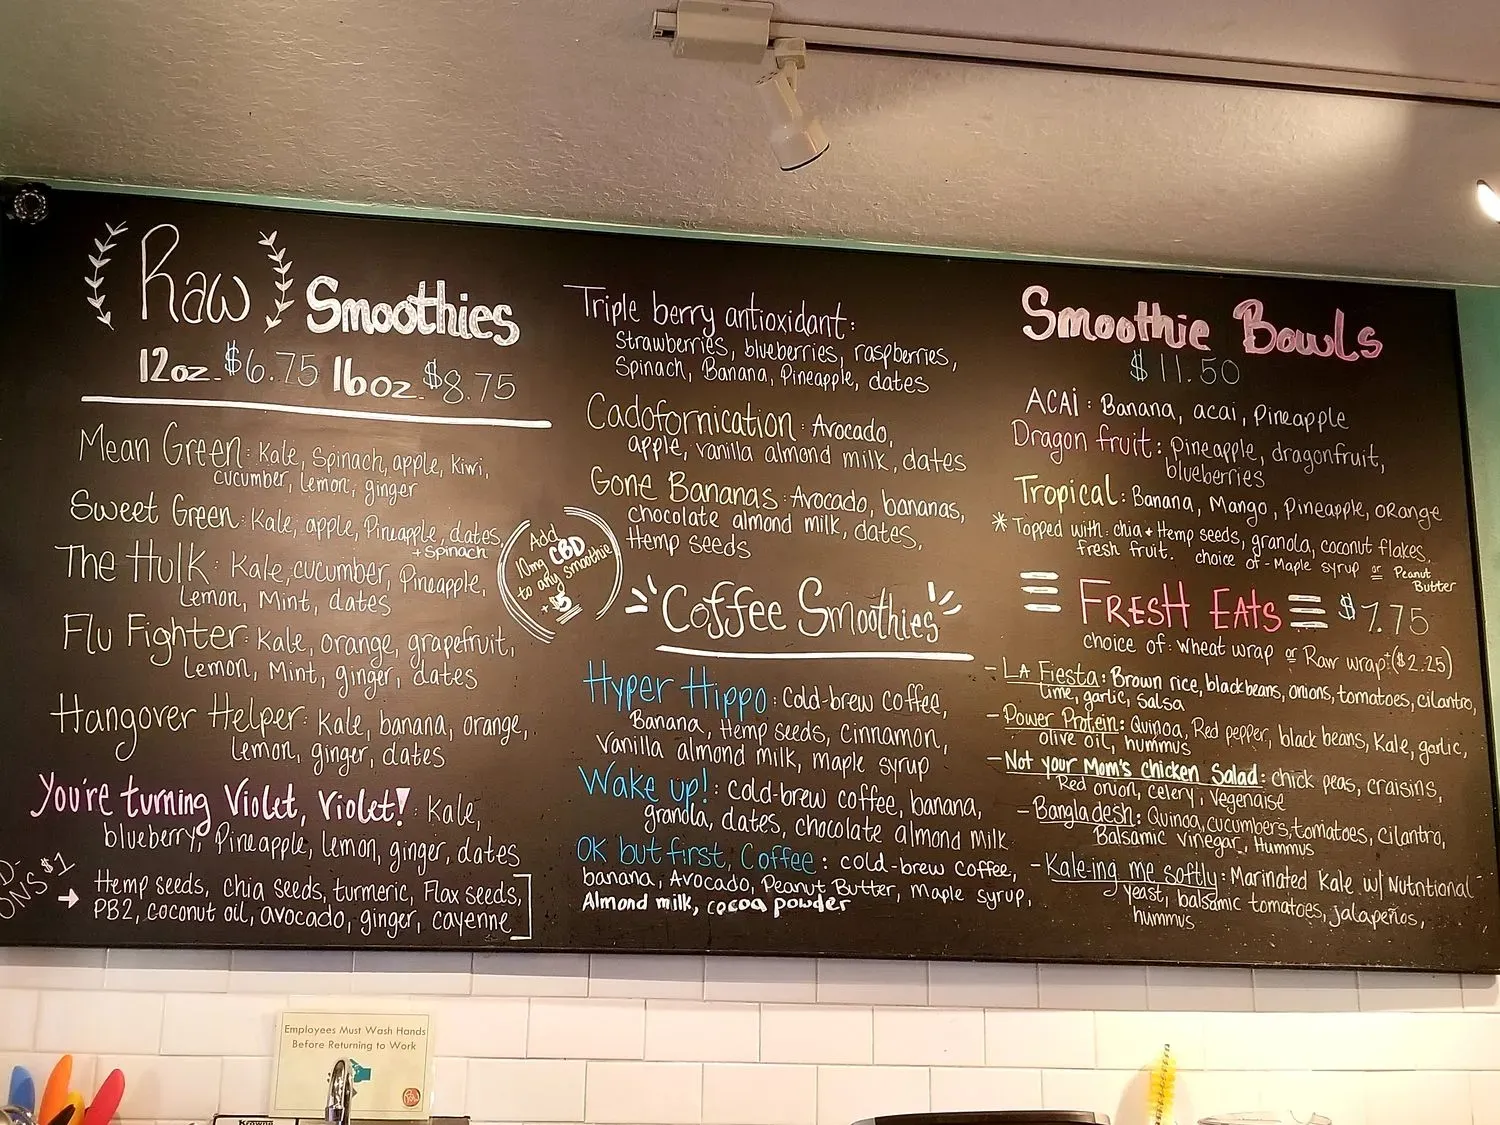 Raw Smoothies
12oz. $6.75 16oz. $8.75
Mean Green: Kale, Spinach, apple, kiwi,
cucumber, lemon, ginger
Sweet Green: Kale, apple, Pineapple, dates,
+ Spinach
The Hulk: Kale, cucumber, Pineapple,
Lemon, Mint, dates
Flu Fighter: Kale, orange, grapefruit,
Lemon, Mint, ginger, dates
Hangover Helper: Kale, banana, orange,
Lemon, ginger, dates
You're turning Violet, Violet!: Kale,
blueberry, Pineapple, lemon, ginger, dates
D-
ONS $1
Hemp seeds, chia seeds, turmeric, Flax seeds,
PB2, coconut oil, avocado, ginger, cayenne
Add
10mg CBD
to any smoothie
+ $5
Triple berry antioxidant:
Strawberries, blueberries, raspberries,
Spinach, Banana, Pineapple, dates
Cadofornication: Avocado,
apple, vanilla almond milk, dates
Gone Bananas: Avocado, bananas,
chocolate almond milk, dates,
Hemp seeds
Coffee Smoothies
Hyper Hippo: Cold-brew coffee,
Banana, Hemp seeds, cinnamon,
Vanilla almond milk, maple syrup
Wake up!: cold-brew coffee, banana,
granola, dates, chocolate almond milk
OK but first, Coffee: cold-brew coffee,
banana, Avocado, Peanut Butter, maple syrup,
Almond milk, cocoa powder
Smoothie Bowls
$11.50
ACAI: Banana, acai, Pineapple
Dragon fruit: Pineapple, dragonfruit,
blueberries
Tropical: Banana, Mango, Pineapple, orange
* Topped with: chia + Hemp seeds, granola, coconut flakes,
fresh fruit. choice of - Maple syrup or Peanut
Butter
FRESH EATS $7.75
choice of: wheat wrap or Raw wrap + ($2.25)
- LA Fiesta: Brown rice, black beans, onions, tomatoes, cilantro,
lime, garlic, salsa
- Power Protein: Quinoa, Red pepper, black beans, Kale, garlic,
olive oil, hummus
- Not your Mom's chicken Salad: chick peas, craisins,
Red onion, celery, Vegenaise
- Bangladesh: Quinoa, cucumbers, tomatoes, cilantro,
Balsamic vinegar, Hummus
- Kale-ing me softly: Marinated Kale w/ Nutritional
yeast, balsamic tomatoes, jalapeños,
hummus
Employees Must Wash Hands
Before Returning to Work